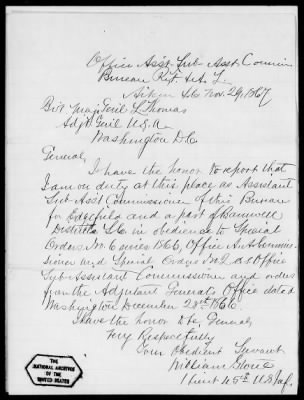 Office Asst. Sub Asst Commr
Bureau Rgf. & A. L.
Aiken S.C. Nov. 29, 1867
Bvt Maj. Genl L. Thomas
Adgt Genl U.S.A.
Washington D.C.
General,
I have the honor to report that
I am on duty at this place as Assistant
Sub Asst Commissioner of this Bureau
for Edgefield and a part of Barnwell
Districts S.C. in obedience to Special
Orders No. 6 series 1866, Office Asst Commis-
sioner and Special Orders No. 2 Office
Sub Assistant Commissioner and orders
from the Adjutant General's Office dated
Washington December 28th 1866.
I have the honor to be, General,
Very Respectfully
Your Obedient Servant
William Stone
1 Lieut 45th U.S. Inf.
THE
NATIONAL ARCHIVES
OF THE
UNITED STATES